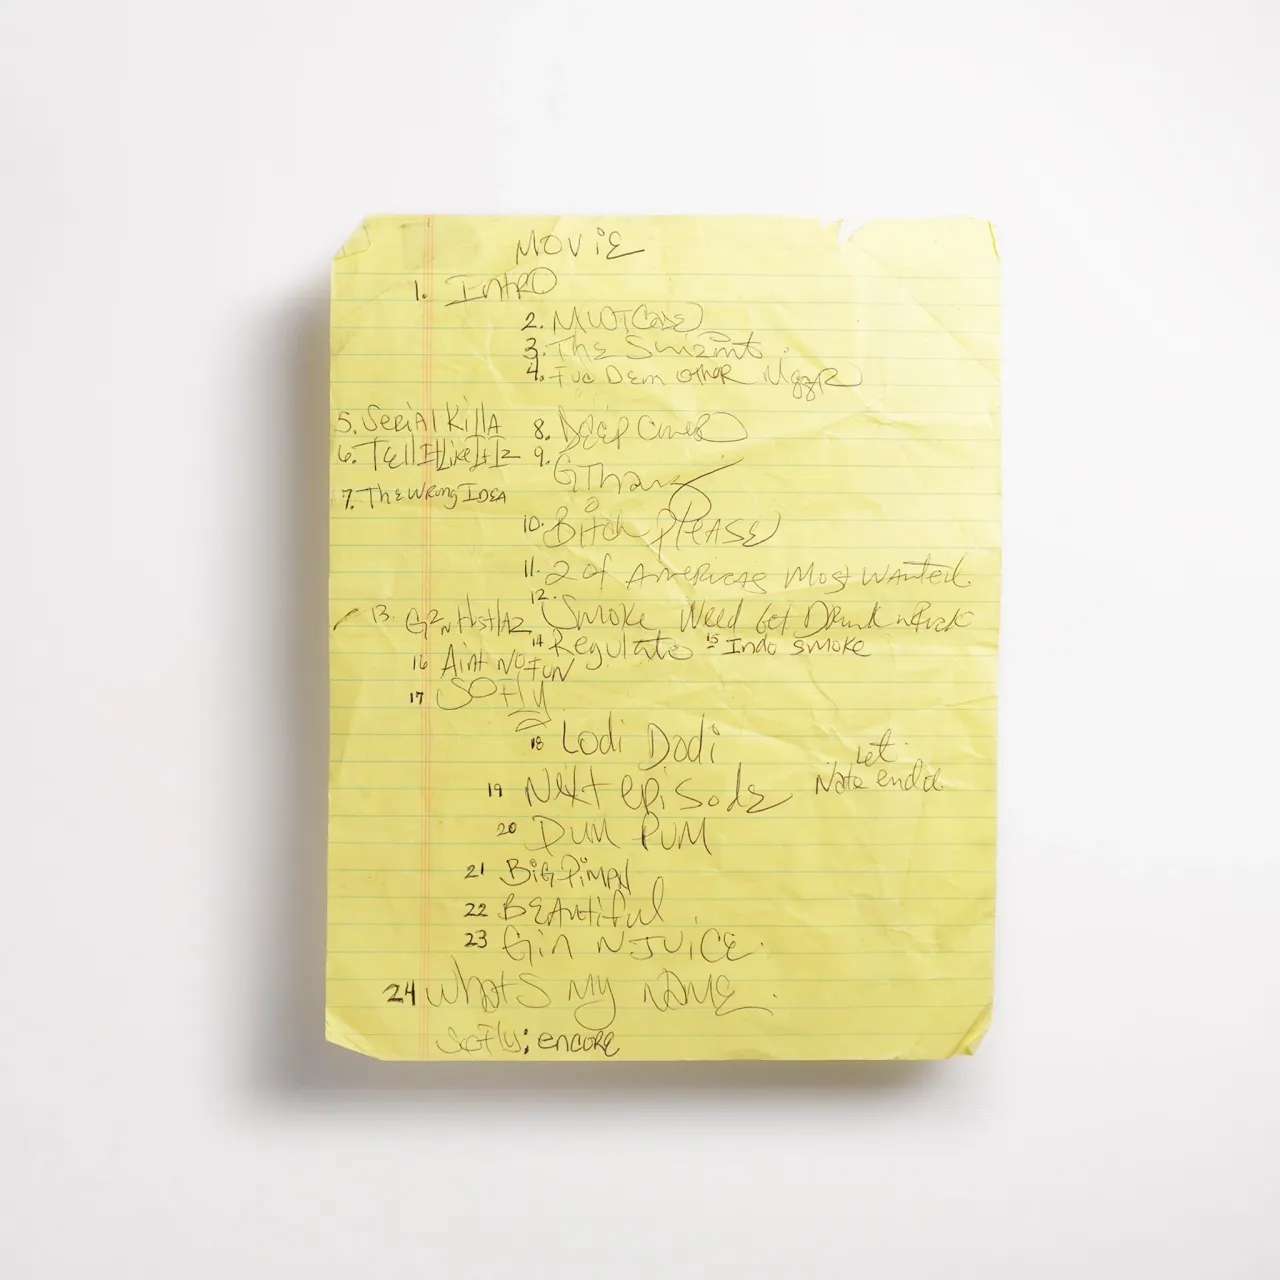 MOViE
1. INtRO
2. MURDERCASE
3. The Shiznit.
4. Fuc Dem other NiggaR
5. SERiAl Killa
6. TEll It Like It Iz
7. ThE WRong IDEA
8. DEEP COVER
9. G Thang
10. Bitch PlEASE
11. 2 of AmERicas Most Wanted.
12. Smoke Weed Get Drunk n Fuck
13. Gz N HustlAz
14 Regulate 15 Indo smoKe
16 Aint No FUN
17 SO Fly
18 Lodi Dodi
Let
Nate end it
19 NExt EpiSodE
20 DUM DUM
21 BiG PiMPN
22 BEAutiful.
23 Gin N JUiCE.
24 WhatS My NAME.
So Fly; encoRE